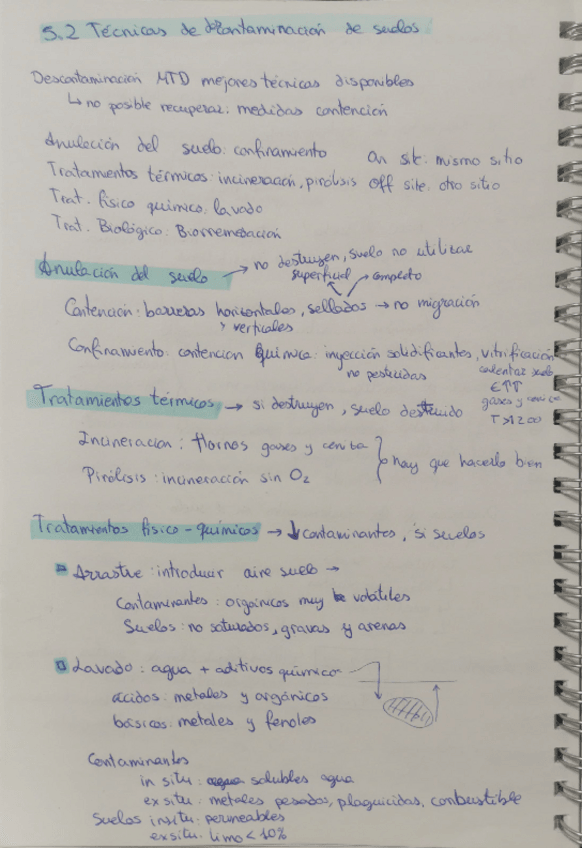 5.2 Técnicas de descontaminación de suelos
Descontaminación MTD mejores técnicas disponibles
↳ no posible recuperar: medidas contención
Anulación del suelo: confinamiento On site: mismo sitio
Tratamientos térmicos: incineración, pirólisis off site: otro sitio
Trat. físico químico: lavado
Trat. Biológico: Biorremediación
Anulación del suelo → no destruyen, suelo no utilizar
superficial completo
Contención: barreras horizontales, sellados → no migración
verticales
Confinamiento: contención química: inyección solidificantes, vitrificación
no pesticidas calentar suelo
€↑↑
gases y
T>1200
Tratamientos térmicos → si destruyen, suelo destruido
Incineración: Hornos gases y ceniza
Pirólisis: incineración sin O2
hay que hacerlo bien
Tratamientos físico-químicos → ↓ contaminantes, si suelos
Arrastre: introducir aire suelo →
Contaminantes: orgánicos muy volátiles
Suelos: no saturados, gravas y arenas
Lavado: agua + aditivos químicos
ácidos: metales y orgánicos
básicos: metales y fenoles
Contaminantes
in situ: solubles agua
ex situ: metales pesados, plaguicidas, combustible
Suelos insitu: permeables
exsitu: limo < 10%